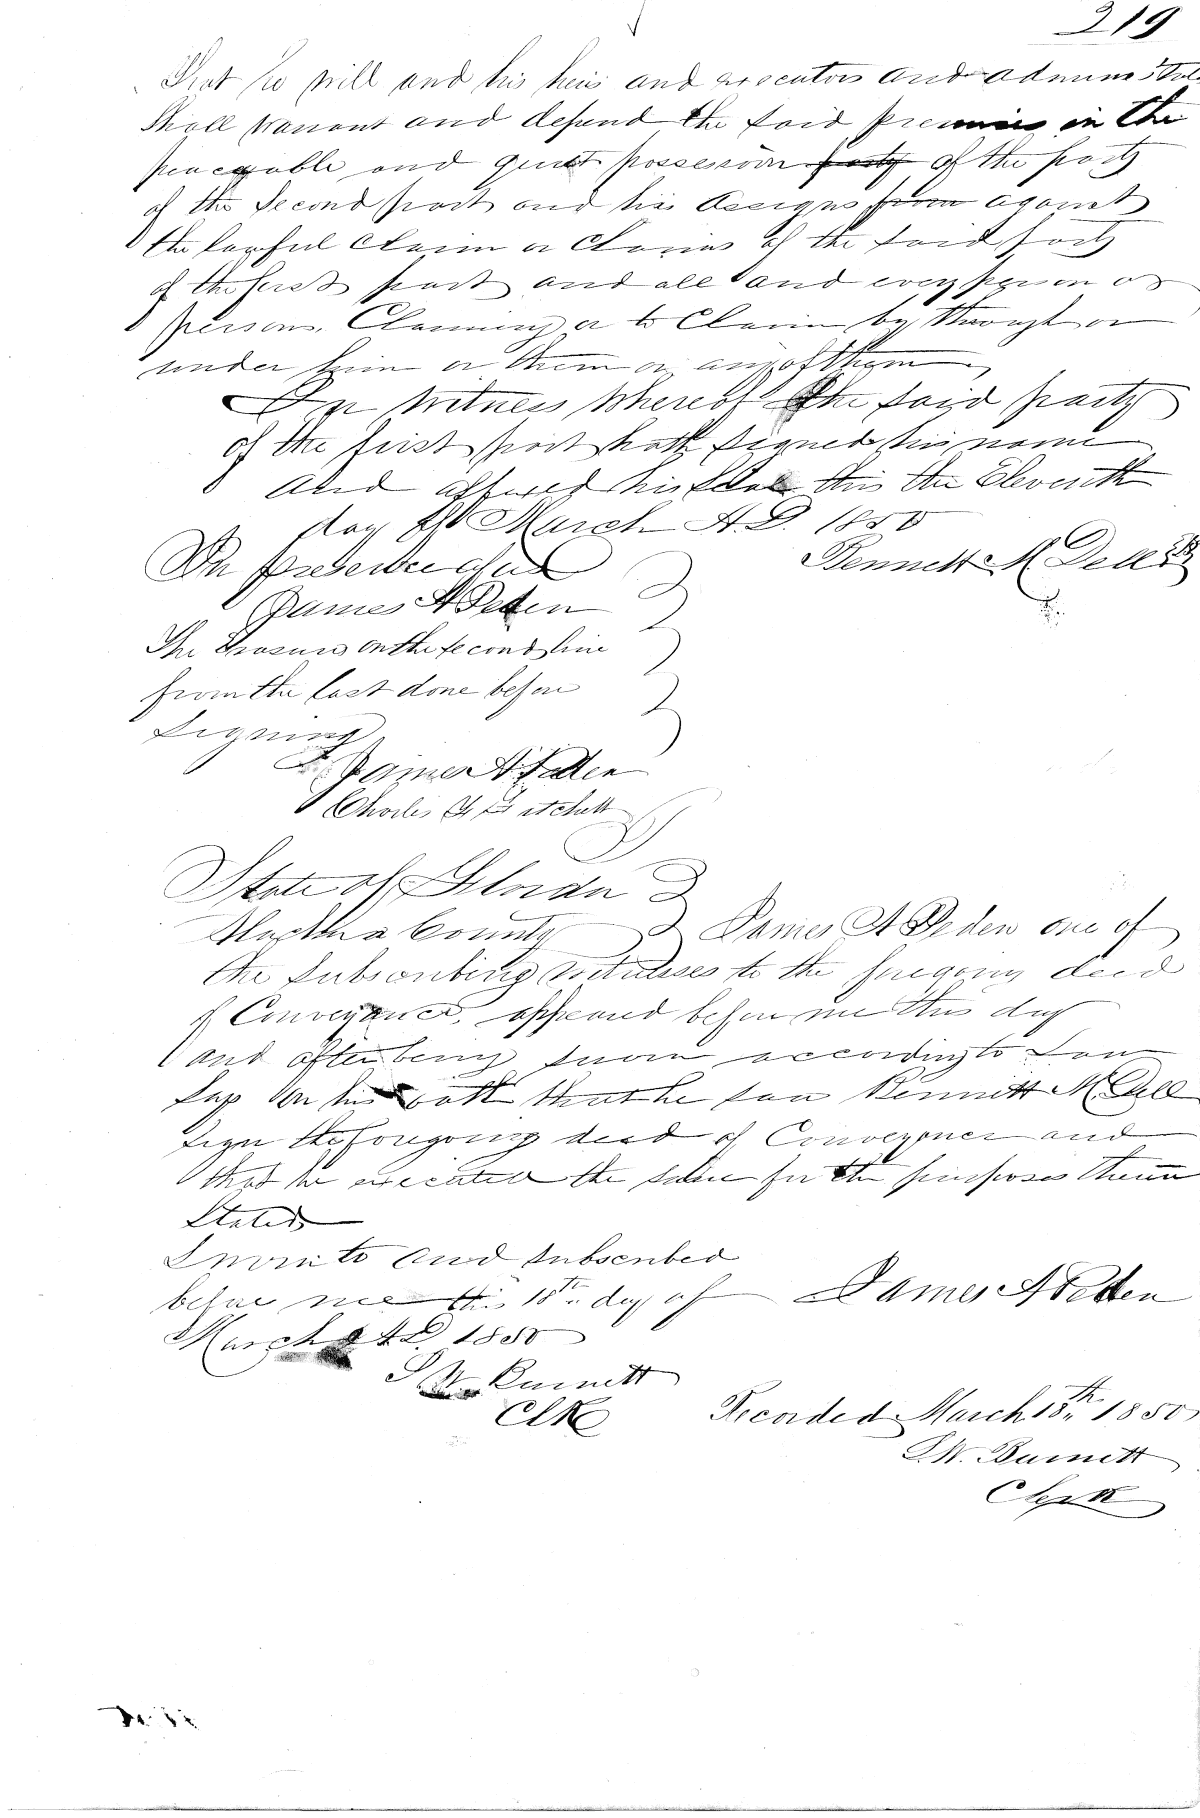 219
That he will and his heirs and executors and administra
Shall warrant and defend the said premises in the
peaceable and quiet possession party of the party
of the Second part and his assigns from against
the lawful claim or claims of the said party
of the first part and all and every person or
persons. Claiming or to Claim by through or
under him or them or any of them
In Witness Whereof the said party
of the first part hath signed his name
and affixed his Seal this the Eleventh
day of March A.D. 1850
In presence of us
Bennett M Dell
James A Peden
The erasure on the second line
from the last done before
signing
James A Peden
Charles G
State of Florida
Alachua County James A Peden one of
the Subscribing witnesses to the foregoing deed
of Conveyance, appeared before me this day
and after being sworn according to Law
Says on his oath that he saw Bennett M. Dell
sign the foregoing deed of Conveyance and
that he executed the same for the purposes therein
Stated
Sworn to and subscribed
before me this 18th day of James A Peden
March A.D. 1850
S W Burnett
Clk
Recorded March 18th 1850
S.W. Burnett
Clerk